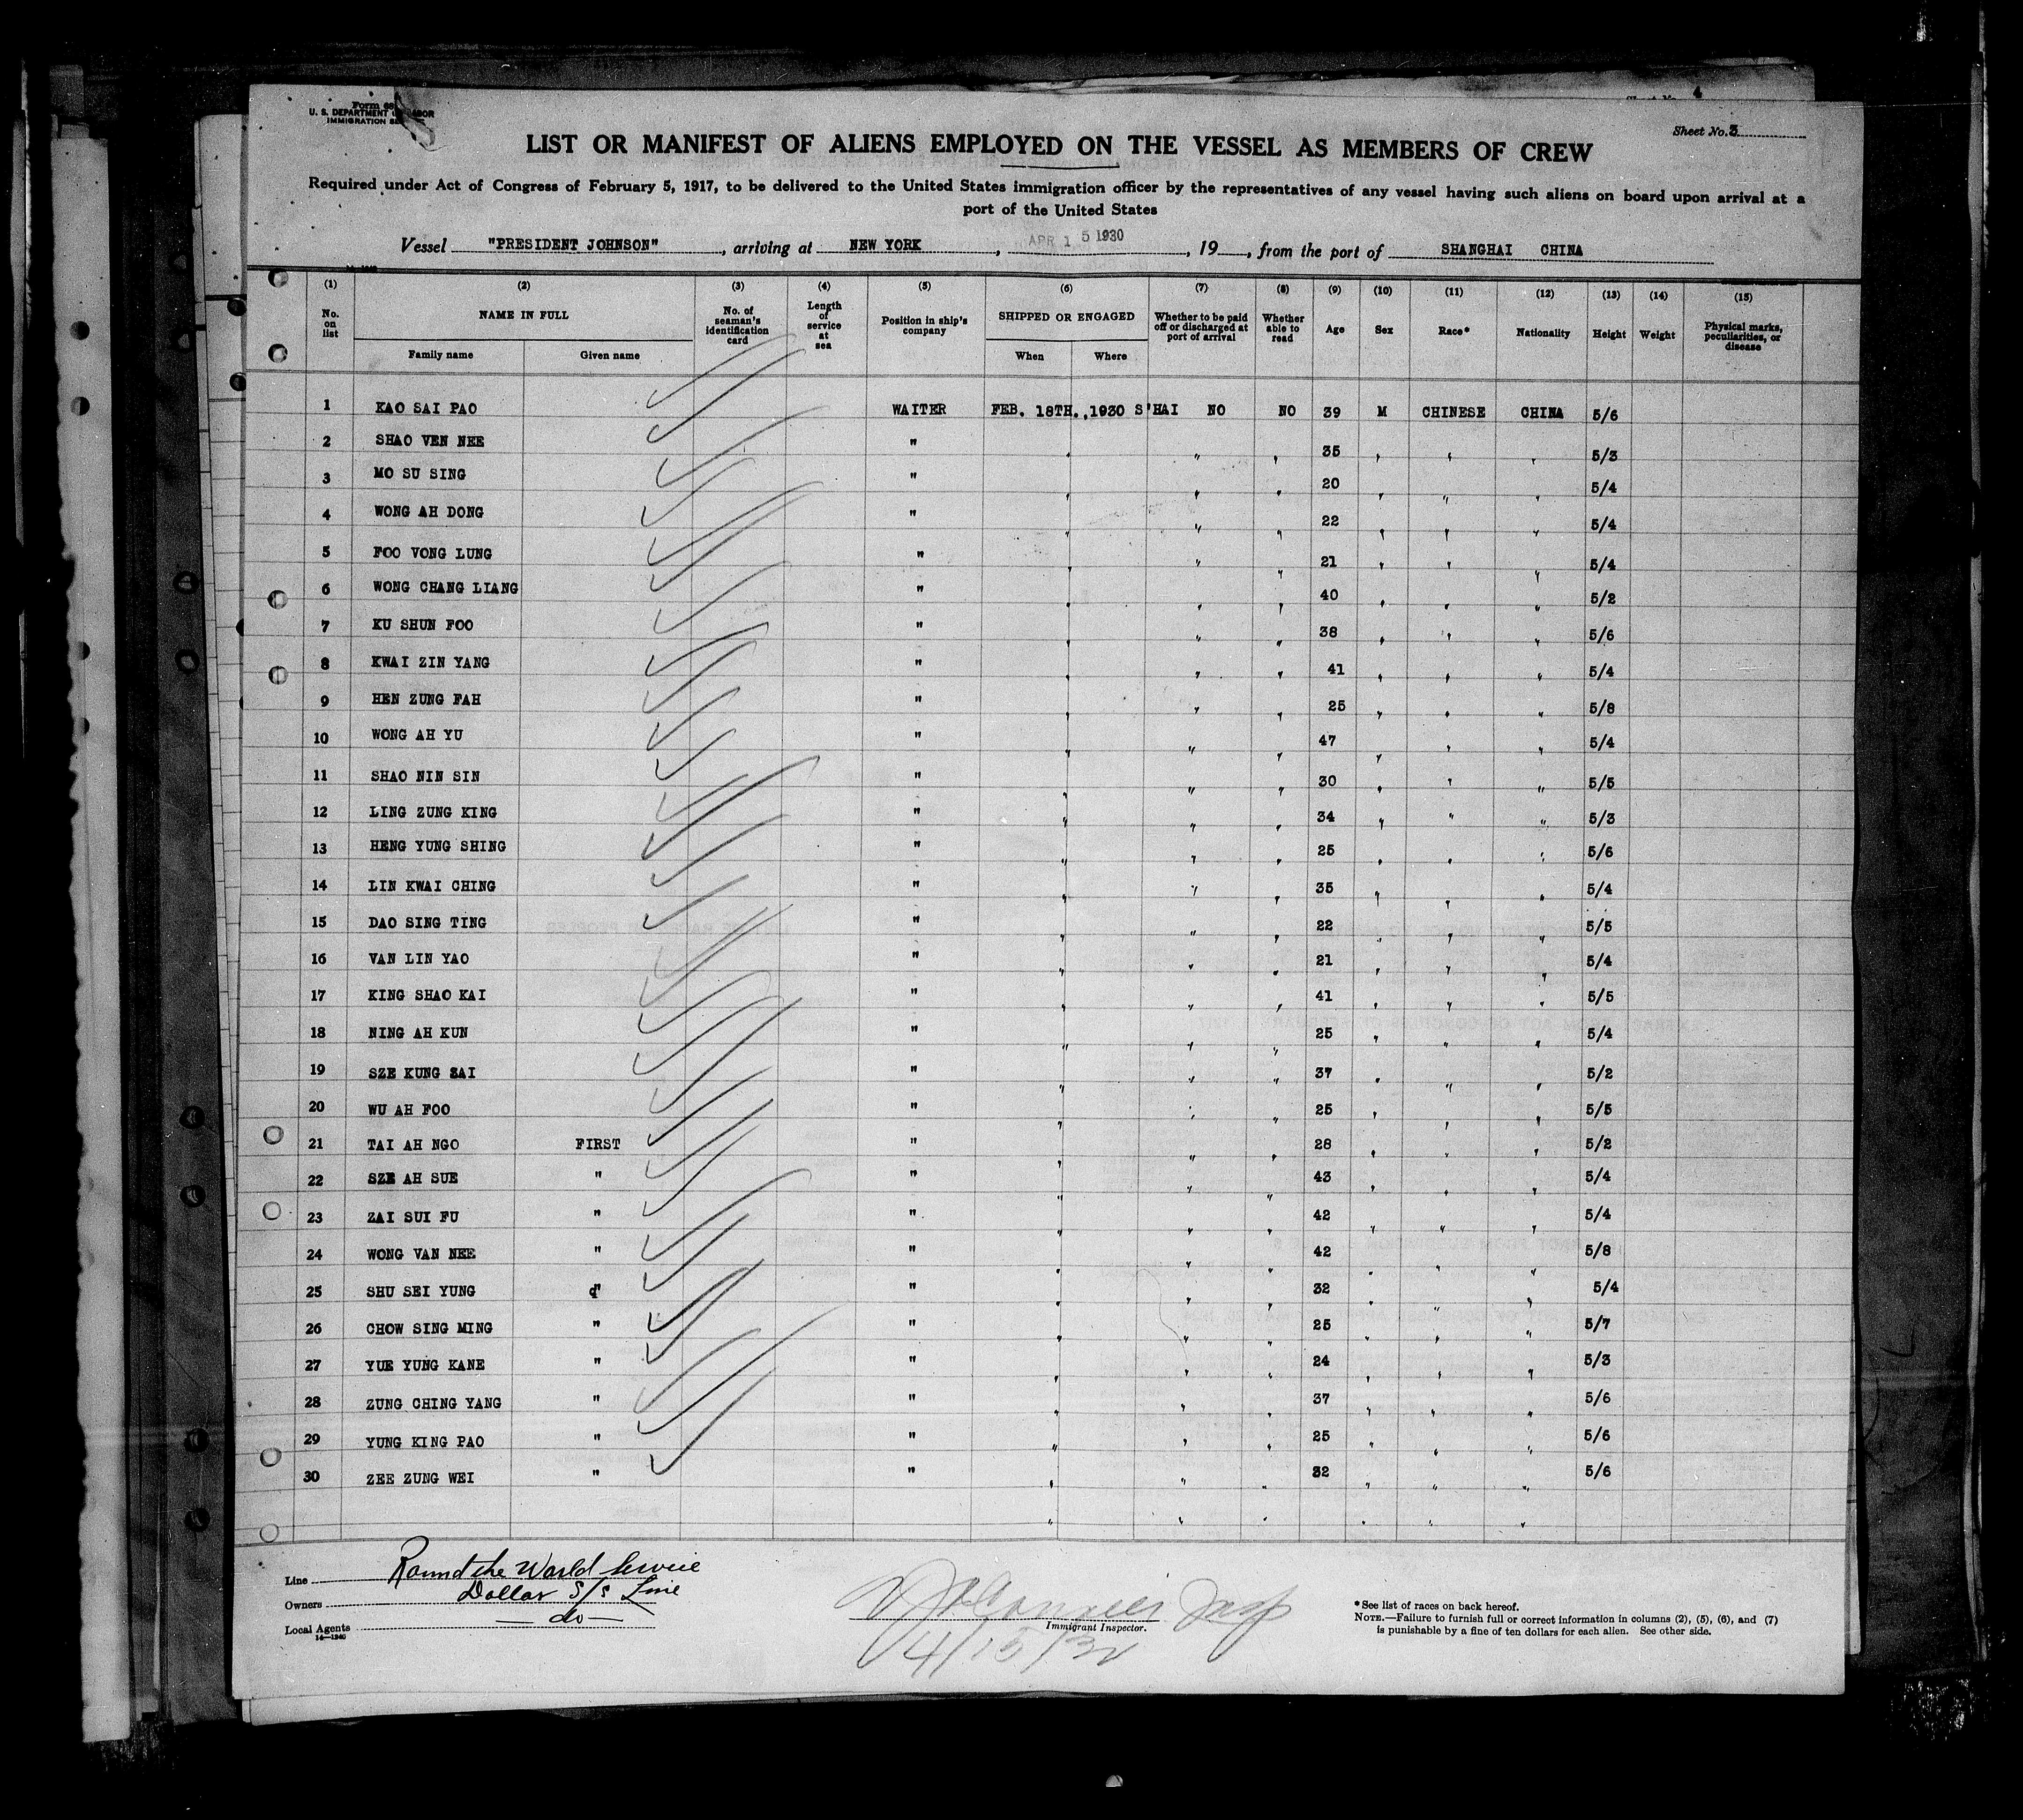 Sheet No. 4
Form 68
U. S. DEPARTMENT OF LABOR
IMMIGRATION SERVICE
Sheet No. 3
LIST OR MANIFEST OF ALIENS EMPLOYED ON THE VESSEL AS MEMBERS OF CREW
Required under Act of Congress of February 5, 1917, to be delivered to the United States immigration officer by the representatives of any vessel having such aliens on board upon arrival at a
port of the United States
Vessel "PRESIDENT JOHNSON", arriving at NEW YORK, APR 15 1930, 19, from the port of SHANGHAI CHINA
(1) (2) (3) (4) (5) (6) (7) (8) (9) (10) (11) (12) (13) (14) (15)
No. on list NAME IN FULL Family name Given name No. of seaman's identification card Length of service at sea Position in ship's company SHIPPED OR ENGAGED When Where Whether to be paid off or discharged at port of arrival Whether able to read Age Sex Race* Nationality Height Weight Physical marks, peculiarities, or disease
1 KAO SAI PAO WAITER FEB. 18TH.,1930 S'HAI NO NO 39 M CHINESE CHINA 5/6
2 SHAO VEN NEE " " " " 35 " " " 5/3
3 MO SU SING " " " " 20 " " " 5/4
4 WONG AH DONG " " " " 22 " " " 5/4
5 FOO VONG LUNG " " " " 21 " " " 5/4
6 WONG CHANG LIANG " " " " 40 " " " 5/2
7 KU SHUN FOO " " " " 38 " " " 5/6
8 KWAI ZIN YANG " " " " 41 " " " 5/4
9 HEN ZUNG FAH " " " " 25 " " " 5/8
10 WONG AH YU " " " " 47 " " " 5/4
11 SHAO NIN SIN " " " " 30 " " " 5/5
12 LING ZUNG KING " " " " 34 " " " 5/3
13 HENG YUNG SHING " " " " 25 " " " 5/6
14 LIN KWAI CHING " " " " 35 " " " 5/4
15 DAO SING TING " " " " 22 " " " 5/5
16 VAN LIN YAO " " " " 21 " " " 5/4
17 KING SHAO KAI " " " " 41 " " " 5/5
18 NING AH KUN " " " " 25 " " " 5/4
19 SZE KUNG ZAI " " " " 37 " " " 5/2
20 WU AH FOO " " " " 25 " " " 5/5
21 TAI AH NGO FIRST " " " " 28 " " " 5/2
22 SZE AH SUE " " " " " 43 " " " 5/4
23 ZAI SUI FU " " " " " 42 " " " 5/4
24 WONG VAN NEE " " " " " 42 " " " 5/8
25 SHU SEI YUNG " " " " " 32 " " " 5/4
26 CHOW SING MING " " " " " 25 " " " 5/7
27 YUE YUNG KANE " " " " " 24 " " " 5/3
28 ZUNG CHING YANG " " " " " 37 " " " 5/6
29 YUNG KING PAO " " " " " 25 " " " 5/6
30 ZEE ZUNG WEI " " " " " 32 " " " 5/6
Line Round the World Service
Owners Dollar S/S Line
Local Agents — do —
14—1240
Insp
Immigrant Inspector.
4/15/30
* See list of races on back hereof.
NOTE.—Failure to furnish full or correct information in columns (2), (5), (6), and (7)
is punishable by a fine of ten dollars for each alien. See other side.